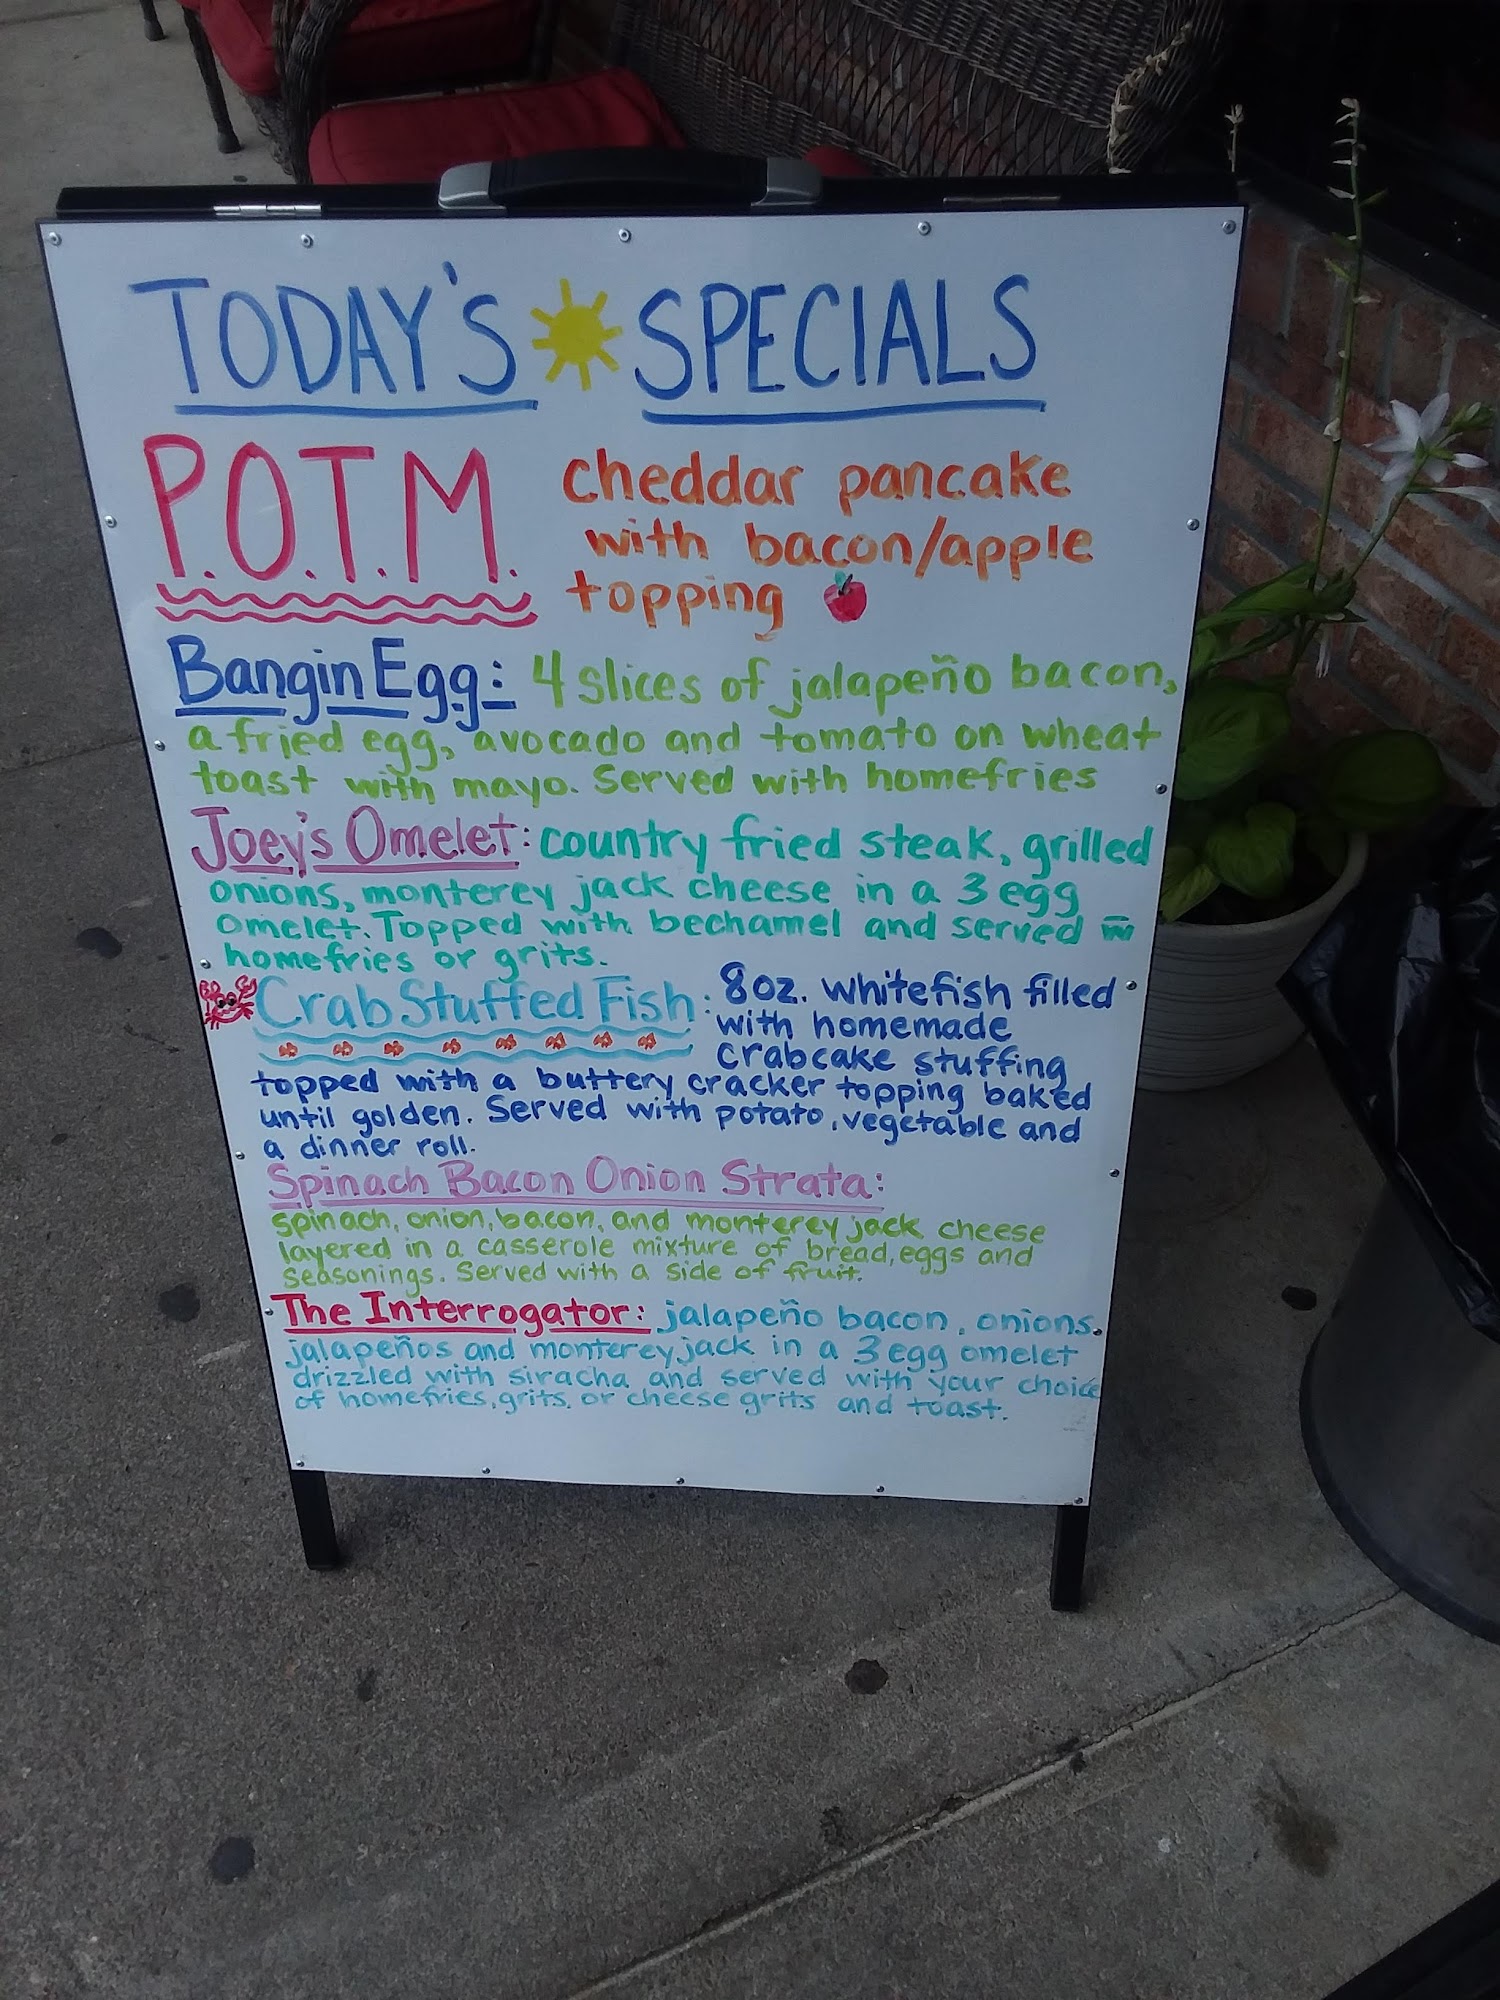 TODAY'S SPECIALS
P.O.T.M. cheddar pancake
with bacon/apple
topping
Bangin Egg: 4 slices of jalapeño bacon,
a fried egg, avocado and tomato on wheat
toast with mayo. Served with homefries
Joey's Omelet: country fried steak, grilled
onions, monterey jack cheese in a 3 egg
omelet. Topped with bechamel and served w
homefries or grits.
Crab Stuffed Fish: 8oz. whitefish filled
with homemade
crabcake stuffing
topped with a buttery cracker topping baked
until golden. Served with potato, vegetable and
a dinner roll.
Spinach Bacon Onion Strata:
spinach, onion, bacon, and monterey jack cheese
layered in a casserole mixture of bread, eggs and
seasonings. Served with a side of fruit.
The Interrogator: jalapeño bacon, onions,
jalapeños and monterey jack in a 3 egg omelet
drizzled with siracha and served with your choice
of homefries, grits, or cheese grits and toast.